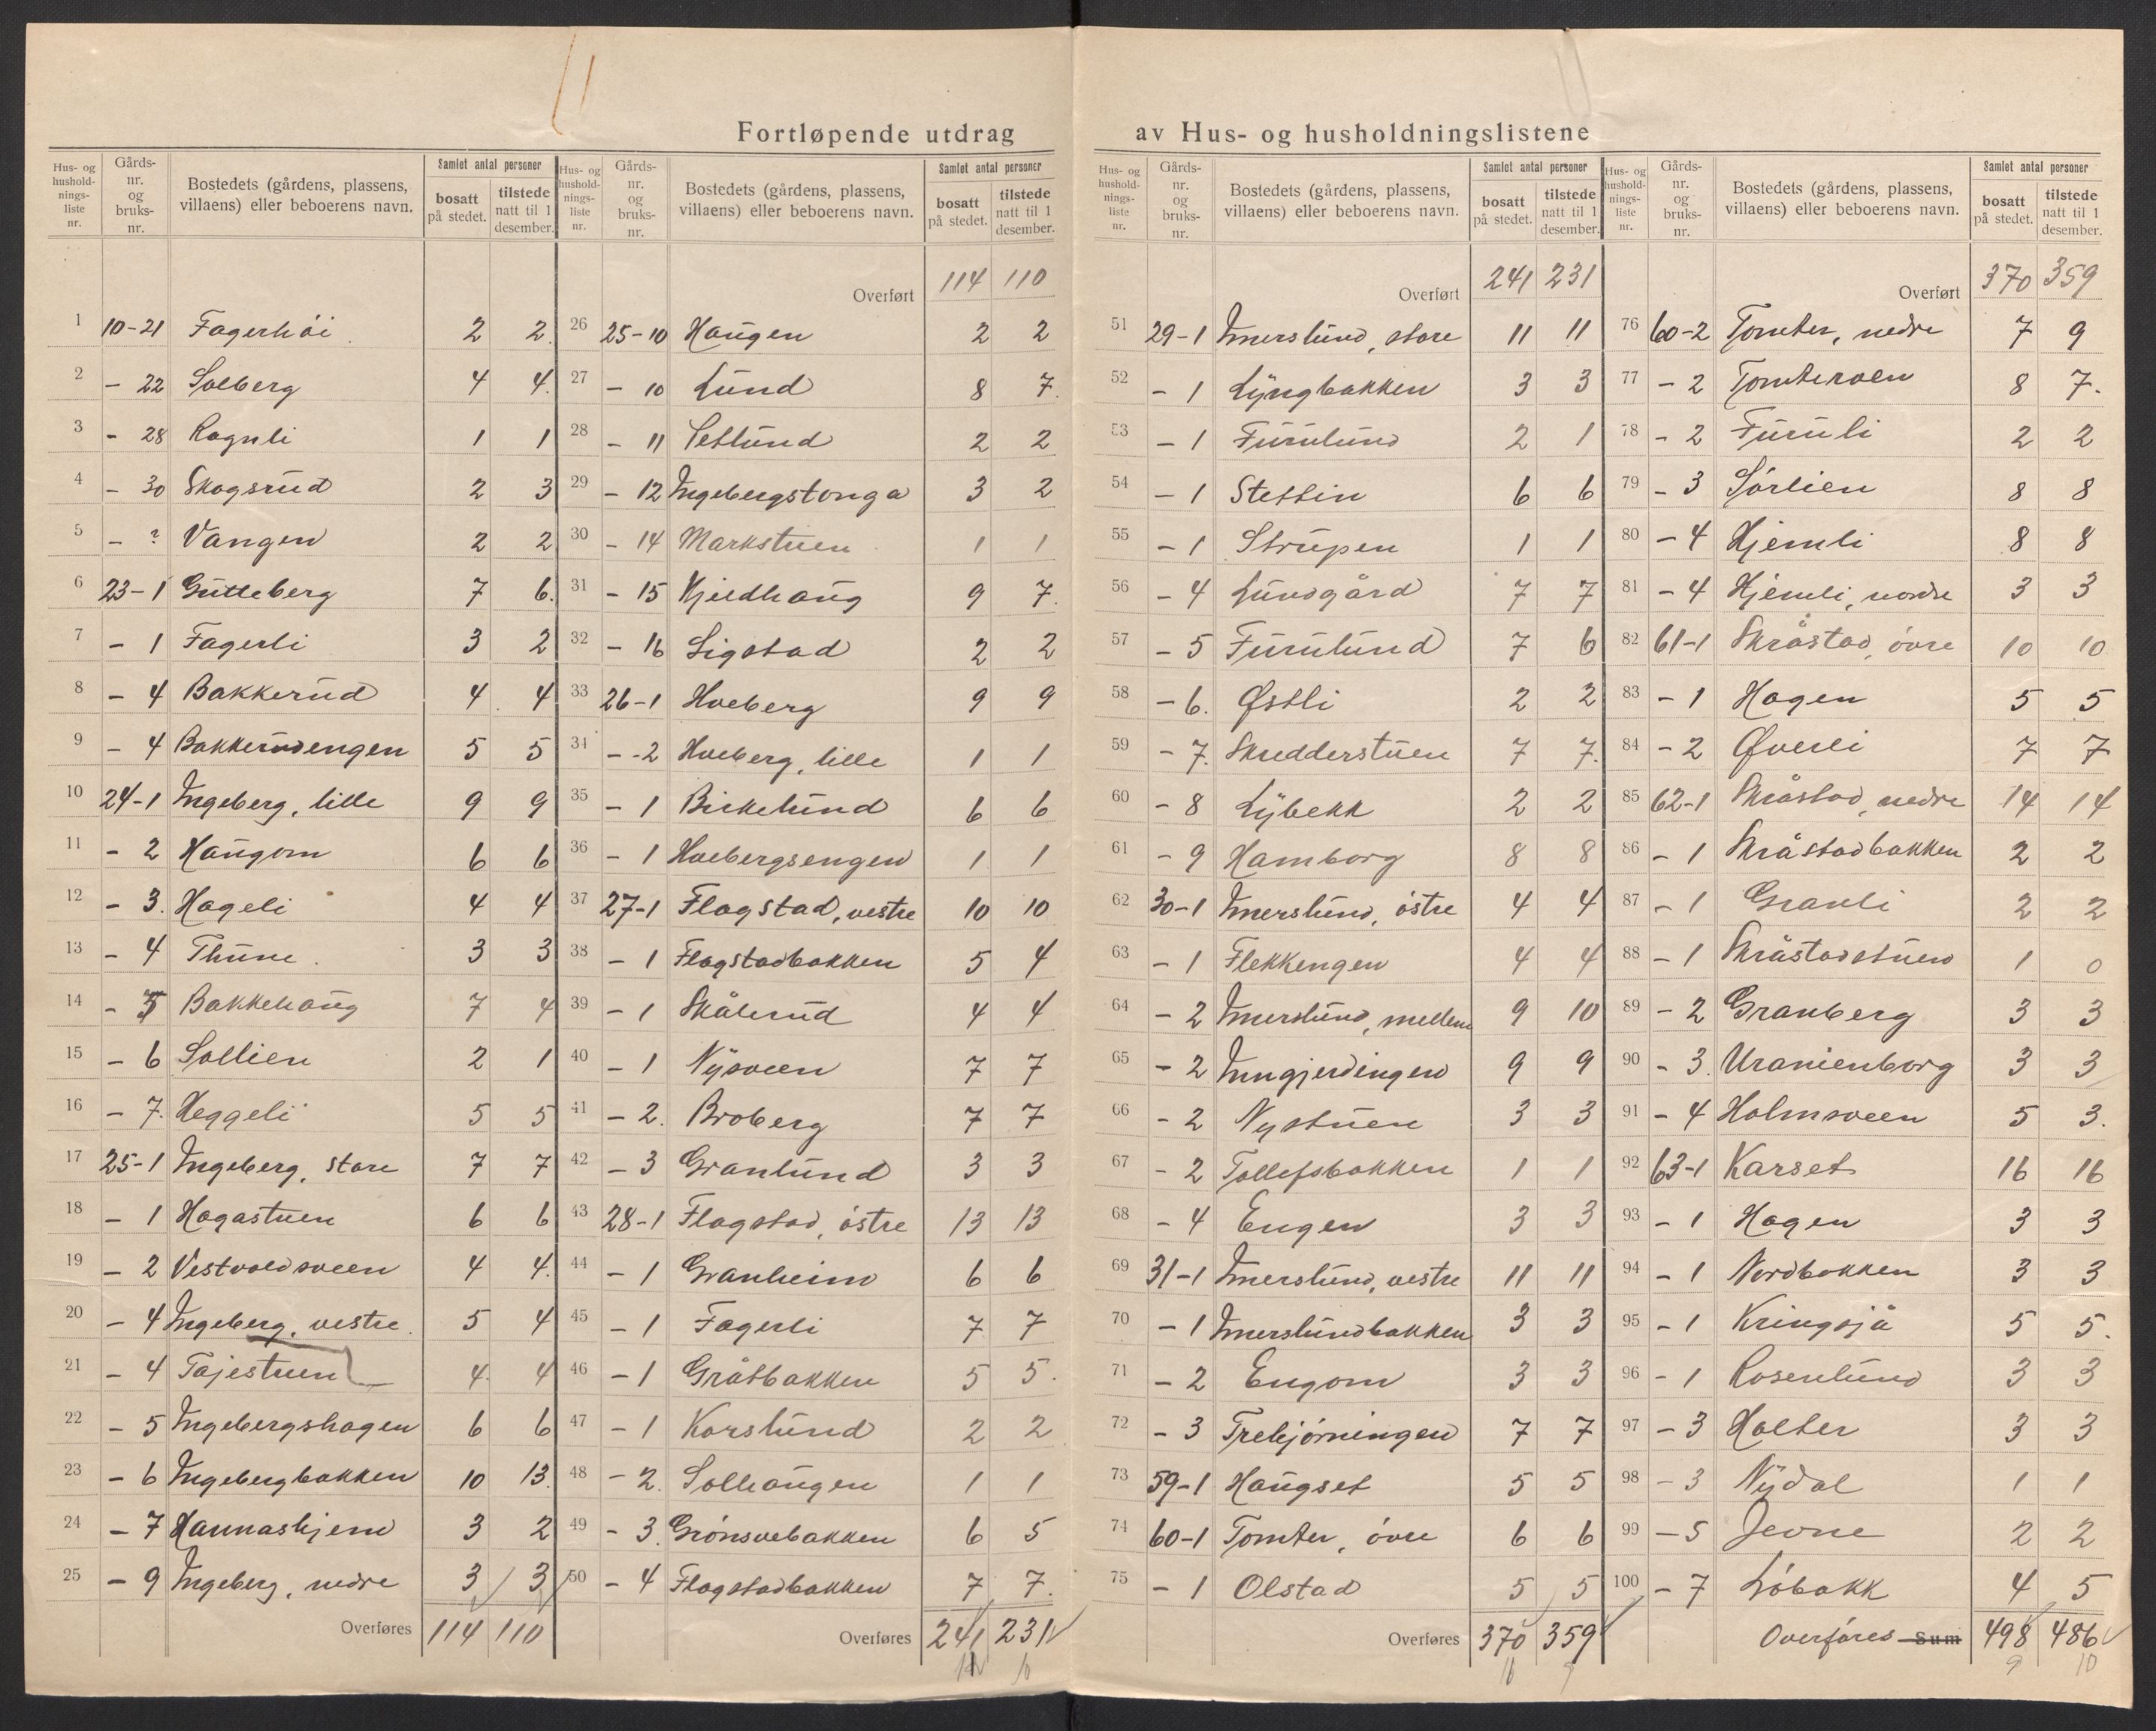 Fortløpende utdrag av Hus- og husholdningslistene
Hus- og husholdningsliste nr.
Gårdsnr. og bruksnr.
Bostedets (gårdens, plassens, villaens) eller beboerens navn.
Samlet antal personer
bosatt på stedet.
tilstede natt til 1 desember.
1 10-21 Fagerhöi 2 2
2 - 22 Solberg 4 4
3 - 28 Ragnli 1 1
4 - 30 Skogsrud 2 3
5 - ? Vangen 2 2
6 23-1 Gütteberg 7 6.
7 - 1 Fagerli 3 2
8 - 4 Bakkerud 4 4
9 - 4 Bakkerudengen 5 5
10 24-1 Ingeberg, lille 9 9
11 - 2 Haugom 6 6
12 - 3. Hageli 4 4
13 - 4 Thune. 3 3
14 - 5 Bakkehaug 7 4
15 - 6 Sollien 2 1
16 - 7. Heggeli 5 5
17 25-1 Ingeberg, store 7 7
18 - 1 Hagastuen 6 6
19 - 2 Vestvoldsveen 4 4.
20 - 4 Ingeberg, vestre. 5 4
21 - 4 Tajestuen 4. 4
22 - 5 Ingebergshagen 6 6
23 - 6 Ingebergbakken 10 13.
24 - 7 Hannashjem 3 2
25 - 9 Ingeberg, nedre 3 3
Overføres 114 110
Hus- og husholdningsliste nr.
Gårdsnr. og bruksnr.
Bostedets (gårdens, plassens, villaens) eller beboerens navn.
Samlet antal personer
bosatt på stedet.
tilstede natt til 1 desember.
Overført 114 110
26 25-10 Haugen 2 2
27 - 10 Lund 8 7.
28 - 11 Setlund 2 2
29 - 12 Ingebergstonga 3 2
30 - 14 Markstuen 1 1
31 - 15 Kjeldhaug 9 7.
32 - 16 Sigstad 2 2
33 26-1 Hveberg 9 9
34 - -2 Hveberg, lille 1 1
35 - 1 Birkelund 6 6
36 - 1 Hvebergsengen 1 1
37 27-1 Flagstad, vestre 10 10
38 - 1 Flagstadbakken 5 4
39 - 1 Skålerud 4 4
40 - 1 Nysveen 7 7
41 - 2. Broberg 7 7
42 - 3 Granlund 3 3
43 28-1 Flagstad, östre 13 13
44 - 1 Granheim 6 6
45 - 1 Fagerli 7 7
46 - 1 Gråtbakken 5 5.
47 - 1 Korslund 2 2
48 - 2. Solhaugen 1 1
49 - 3. Grönsvebakken 6 5
50 - 4 Flagstadbakken 7 7.
Overføres 241 231
Hus- og husholdningsliste nr.
Gårdsnr. og bruksnr.
Bostedets (gårdens, plassens, villaens) eller beboerens navn.
Samlet antal personer
bosatt på stedet.
tilstede natt til 1 desember.
Overført 241 231
51 29-1 Imerslund, store 11 11
52 - 1 Lyngbakken 3 3
53 - 1 Furulund 2 1
54 - 1 Stettin 6 6
55 - 1 Strupen 1 1
56 - 4 Lundgård 7 7
57 - 5 Furulund 7 6
58 - 6. Østli 2 2
59 - 7. Skredderstuen 7 7.
60 - 8 Lybekk 2 2
61 - 9 Hamborg 8 8
62 30-1 Imerslund, östre 4 4
63 - 1 Flekkengen 4 4
64 - 2 Imerslund, mellem 9 10
65 - 2 Inngjerdingen 9 9
66 - 2 Nystuen 3 3
67 - 2 Tollefsbakken 1 1
68 - 4 Engen 3 3
69 31-1 Imerslund, vestre 11 11
70 - 1 Imerslundbakken 3 3
71 - 2 Engom 3 3
72 - 3 Trehjörningen 7 7
73 59-1 Haugset 5 5
74 60-1 Tomter, övre 6 6
75 - 1 Olstad 5 5
Overføres 370 359
Hus- og husholdningsliste nr.
Gårdsnr. og bruksnr.
Bostedets (gårdens, plassens, villaens) eller beboerens navn.
Samlet antal personer
bosatt på stedet.
tilstede natt til 1 desember.
Overført 370 359
76 60-2 Tomter, nedre 7 9
77 - 2 Tomteroen 8 7.
78 - 2 Furuli 2 2
79 - 3 Sörlien 8 8
80 - 4 Hjemli 8 8
81 - 4 Hjemli, nordre 3 3
82 61-1 Skråstad, övre 10 10
83 - 1 Hagen 5 5
84 - 2 Øverli 7 7
85 62-1 Skråstad, nedre 14 14
86 - 1 Skråstadbakken 2 2
87 - 1 Granli 2 2
88 - 1 Skråstadstuen 1 0
89 - 2 Granberg 3 3
90 - 3. Uranienborg 3 3
91 - 4 Holmsveen 5 3.
92 63-1 Karset 16 16
93 - 1 Hagen 3 3
94 - 1 Nordbakken 3 3
95 - 1 Kringsjå 5 5.
96 - 1 Rosenlund 3 3
97 - 3 Holter 3 3
98 - 3 Nydal 1 1
99 - 5 Jevne 2 2
100 - 7 Löbakk 4 5
Overföres Sum 498 486
16 9 9 10